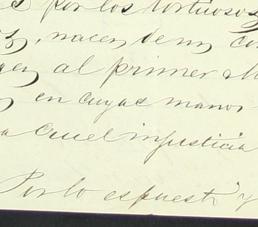 por los tortuosos
, nacen de un co
al primer
en cuyas manos
a cruel injusticia
Por lo espuesto y